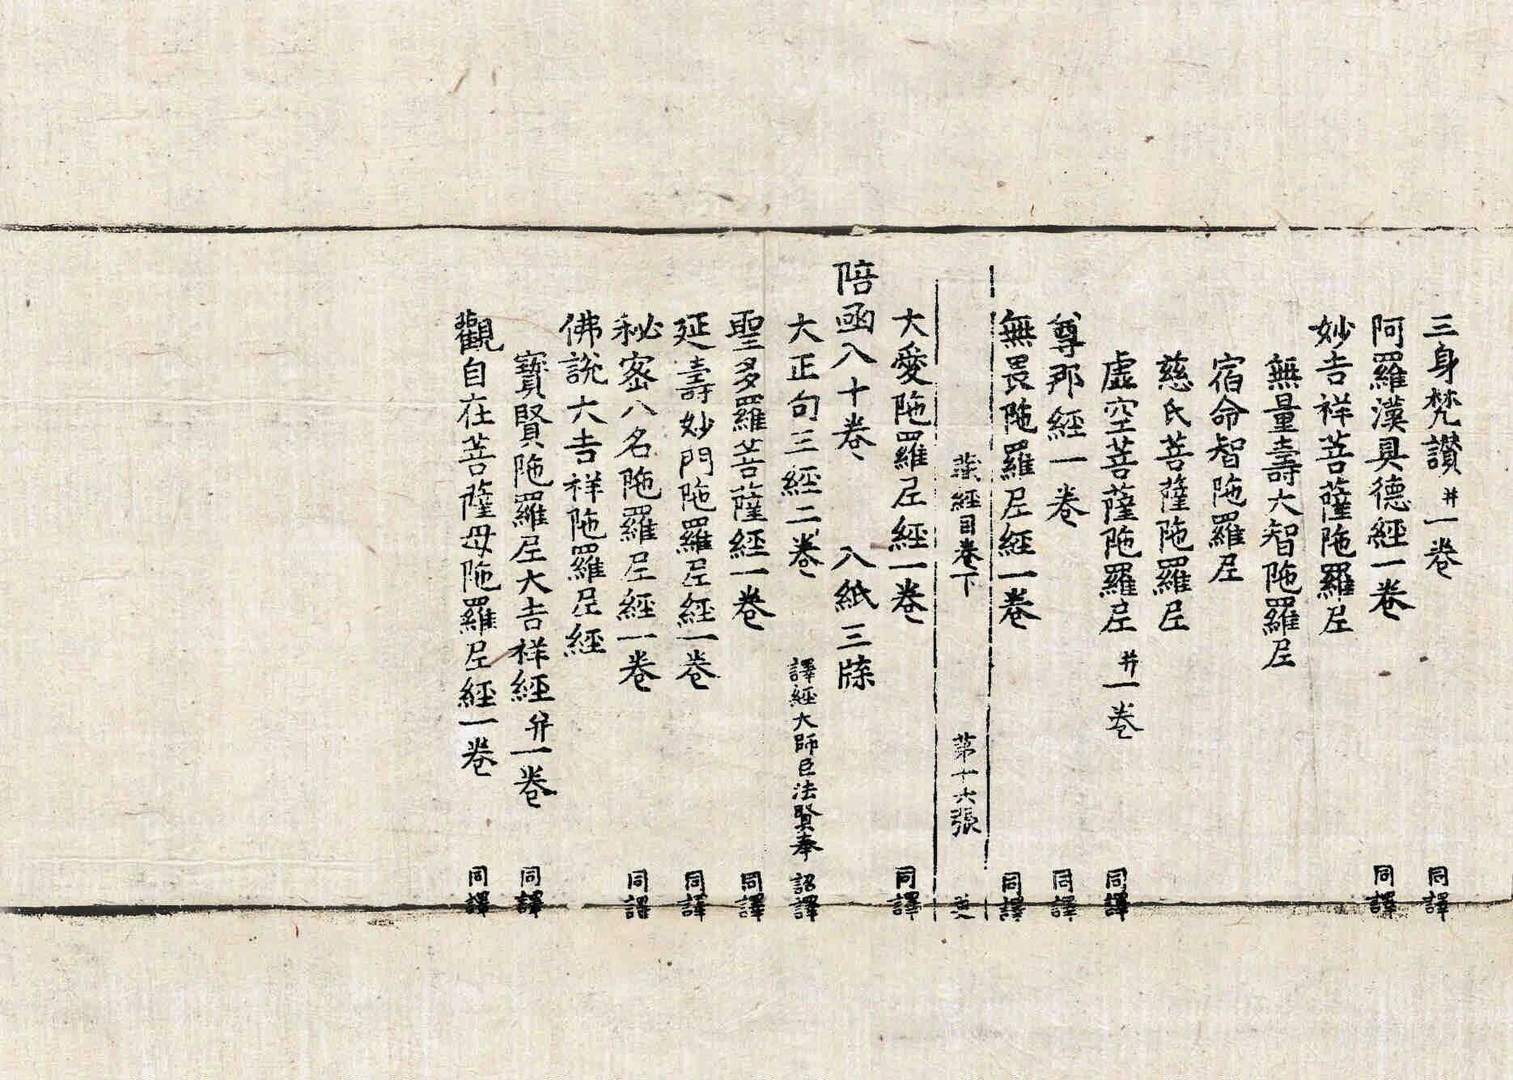 三身梵讃 并一卷 同譯
阿羅漢具德經一卷 同譯
妙吉祥菩薩陁羅尼
無量壽大智陁羅尼
宿命智陁羅尼
慈氏菩薩陁羅尼
虛空菩薩陁羅尼 并一卷 同譯
尊那經一卷 同譯
無畏陁羅尼經一卷 同譯
經目卷下 第十六張
大愛陁羅尼經一卷 同譯
陪函八十卷 八紙三牒
大正句三經二卷 譯經大師臣法賢奉 詔譯
聖多羅菩薩經一卷 同譯
延壽妙門陁羅尼經一卷 同譯
秘密八名陁羅尼經一卷 同譯
佛說大吉祥陁羅尼經
寶賢陁羅尼大吉祥經 弁一卷 同譯
觀自在菩薩母陁羅尼經一卷 同譯